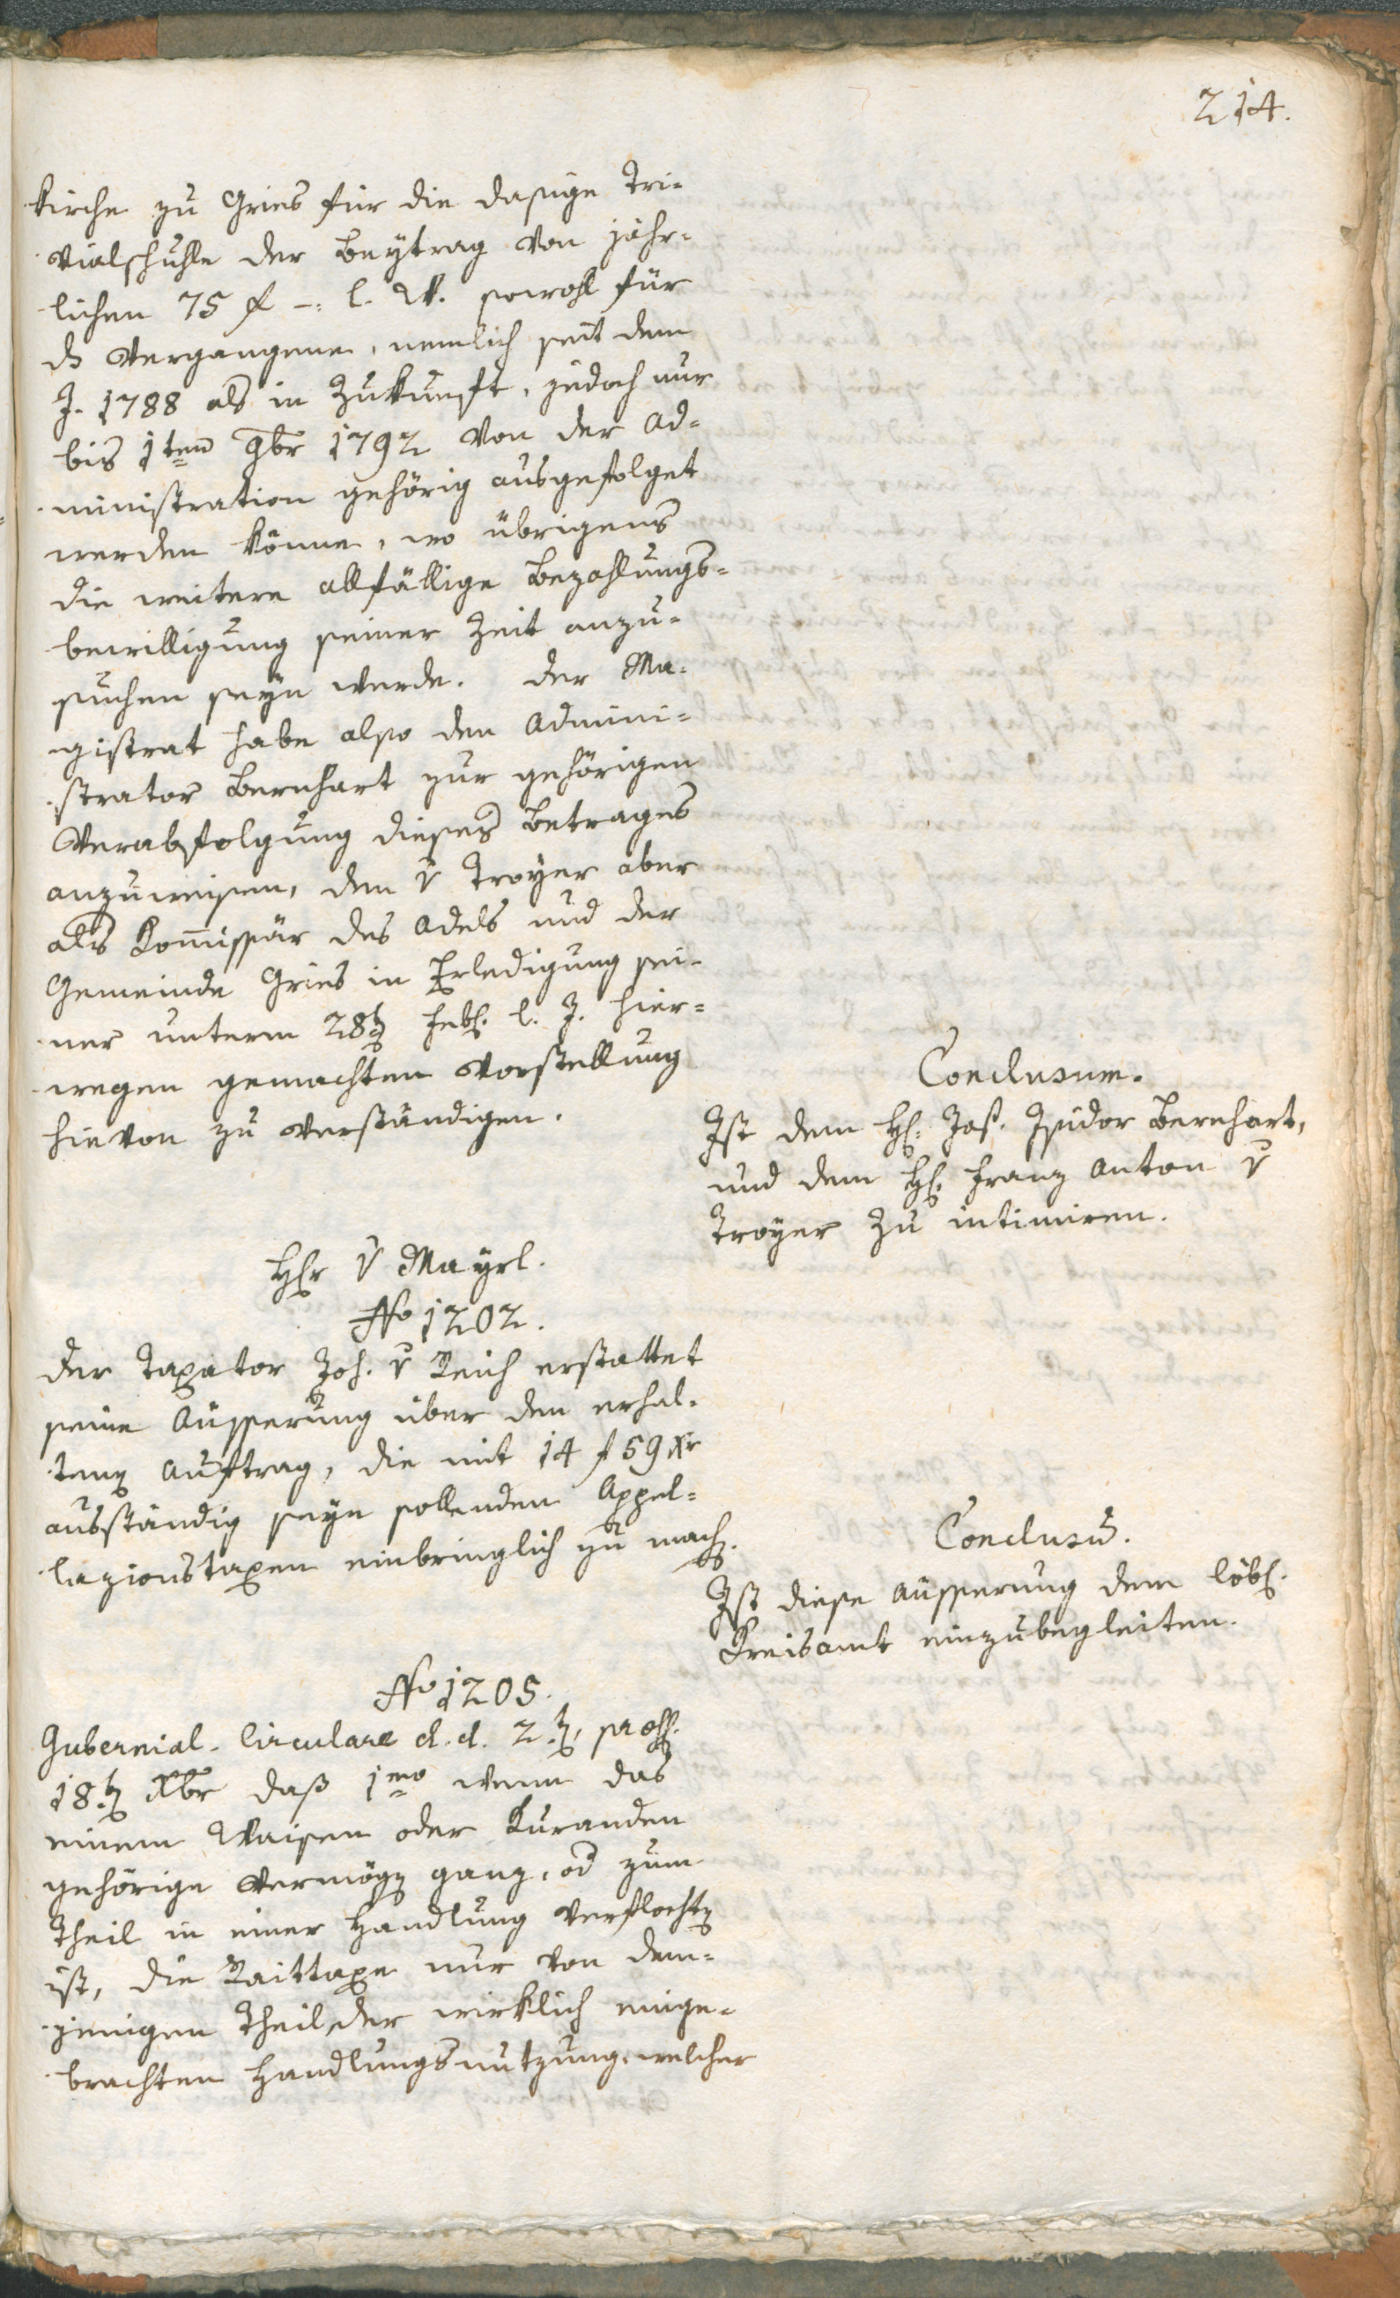 214.
kirche zu Gries für die dasige Tri-
vialschuhle der Beytrag von jähr-
lichen 75 f –: l. W. sowohl für
ds Vergangene, nemlich seit dem
J. 1788 als in Zukunft, jedoch nur
bis 1ten 9br 1792 von der Ad-
ministration gehörig ausgefolget
werden könne, wo übrigens
die weitere allfällige Bezahlungs-
bewilligung seiner Zeit anzu-
suchen seyn werde. Der Ma-
gistrat habe also den Admini-
strator Bernhart zur gehörigen
Verabfolgung dieses Betrages
anzuweisen, den v Troyer aber
als Komissär des Adels und der
Gemeinde Gries in Erledigung sei-
ner unterm 28t Feb. l. J. hier-
wegen gemachten Vorstellung
hievon zu verständigen.
Conclusum.
Ist dem H. Jos. Isidor Bernhart,
und dem H. Franz Anton v
Troyer zu intimiren.
Hr v Mayrl.
No 1202.
Der Taxator Joh. v Reich erstattet
seine Äusserung über den erhal-
tenen Auftrag, die mit 14 f 59 xr
ausständig seyn sollenden Appel-
lazionstaxen einbringlich zu mach.
Conclusū.
Ist diese Äusserung dem löbl.
Kreisamt einzubegleiten.
No 1205.
Gubernial-Circulare d. d. 2.t, præs.
18.t Xbr daß 1mo wenn das
einem Waisen oder Kuranden
gehörige Vermögen ganz, od zum
Theil in einer Handlung verflochten
ist, die Raittaxe nur von dem-
jenigen Theil der wirklich einge-
brachten Handlungsnutzung, welcher